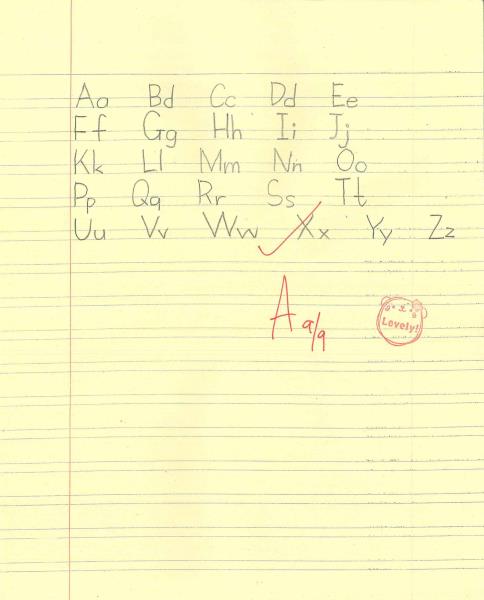 Aa Bd Cc Dd Ee
Ff Gg Hh Ii Jj
Kk Ll Mm Nn Oo
Pp Qq Rr Ss Tt
Uu Vv Ww Xx Yy Zz
A 9/9
Lovely!